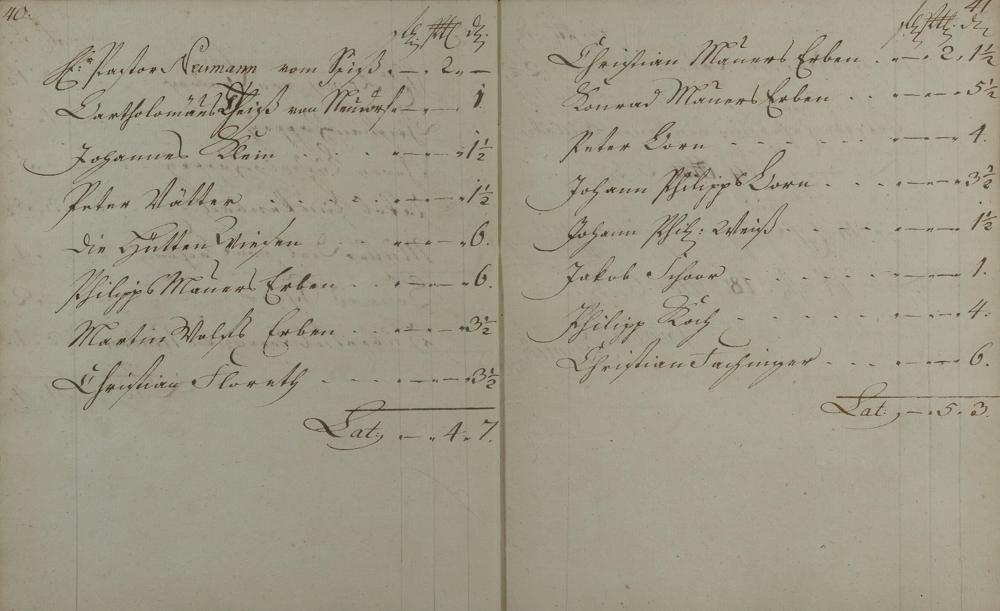 40.
H: Pastor Neumann vom Spiß . — . 2. —
Bartholomäus Theiß von Neudorf . — . — . 1
Johannes Klein . . . . — . — . 1½
Peter Vätter . . . . . — . — . 1½
die Hütten Wiesen . . . — . — . 6.
Philipps Mauers Erben . . . — . — . 6.
Martin Wolfs Erben . . . — . — . 3½
Christian Floreth . . . . — . — . 3½
Lat: . — . 4. 7.
41
Christian Mauers Erben . . — . 2. 1½
Konrad Mauers Erben . . . — . — . 5½
Peter Corn . . . . . — . — . 4.
Johann Philipps Corn . . . — . — . 3½
Johann Phil: Weiß . . . . — . — . 1½
Jakob Schoor . . . . . — . — . 1.
Philipp Koch . . . . . — . — . 4.
Christian Fachinger . . . — . — . 6.
Lat: . — . 5. 3.